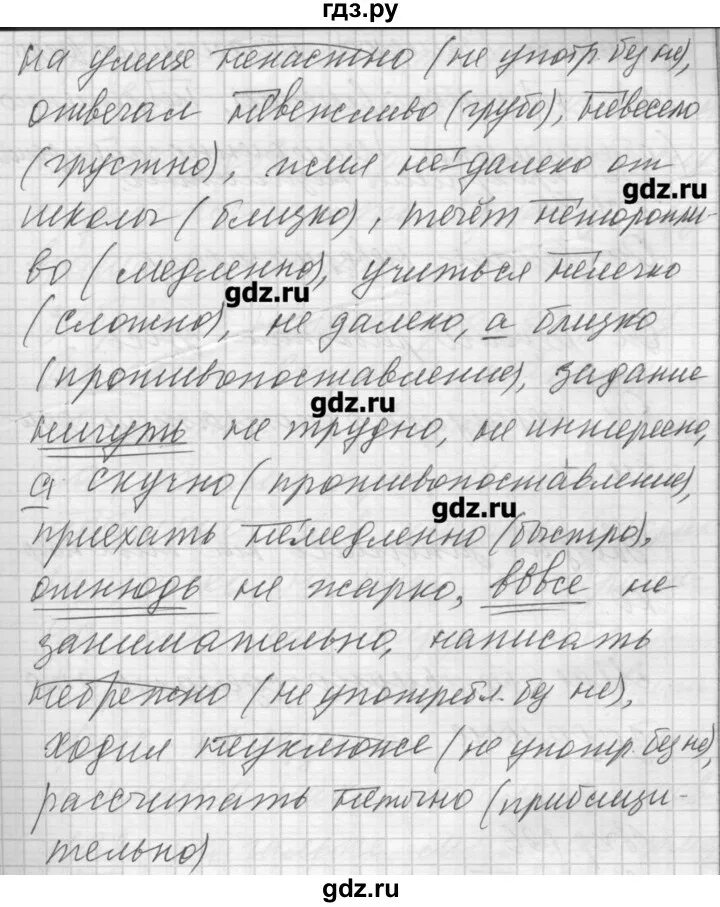 гдз.ру
на улице ненастно (не употр. без не),
отвечал невежливо (грубо), невесело
(грустно), жил недалеко от
gdz.ru
школы (близко), течёт нетороплив-
во (медленно), учиться нелегко
gdz.ru
(сложно), не далеко, а близко
(противопоставление), задание
gdz.ru
ничуть не трудно, не интересно,
а скучно (противопоставление),
gdz.ru
приехать немедленно (быстро),
отнюдь не жарко, вовсе не
занимательно, написать
небрежно (не употребл. без не),
ходил неуклюже (не употр. без не),
рассчитать неточно (приблизи-
тельно)
gdz.ru